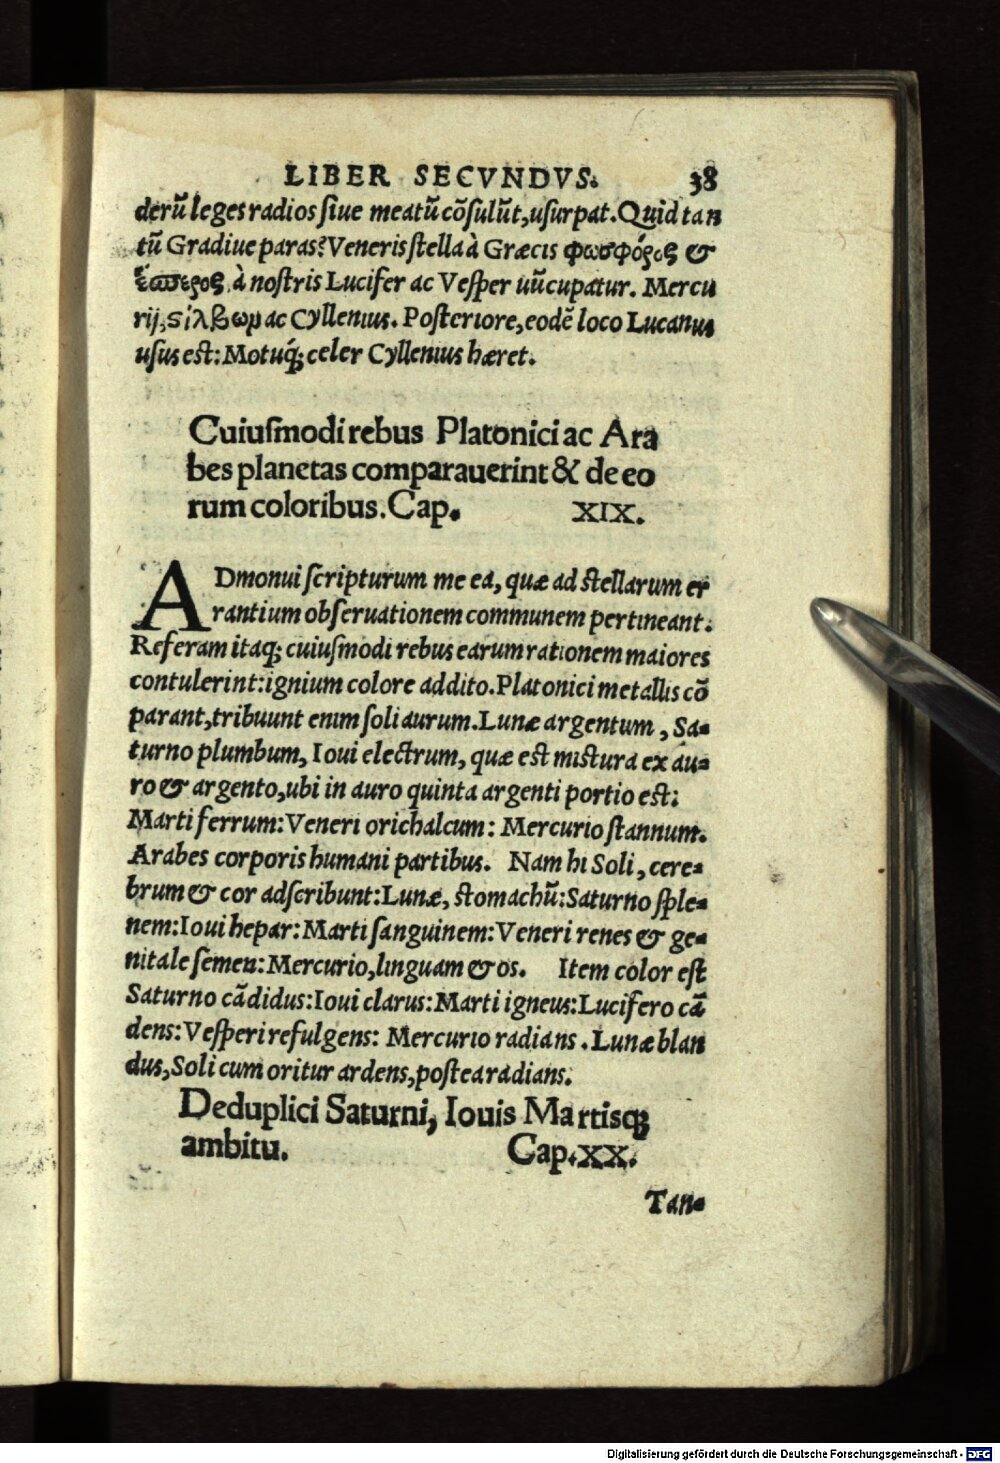 LIBER SECVNDVS. 38
derũ leges radios siue meatũ cõsulũt, usurpat. Quid tan
tũ Gradiue paras? Veneris stella à Græcis φωσφόρος &
ἕωσπερος, à nostris Lucifer ac Vesper nũcupatur. Mercu
rij, στίλβωμ ac Cyllenius. Posteriore, eodẽ loco Lucanus
usus est: Motuq́; celer Cyllenius hæret.
Cuiusmodi rebus Platonici ac Ara
bes planetas comparauerint & de eo
rum coloribus. Cap. XIX.
ADmonui scripturum me ea, quæ ad stellarum er
rantium obseruationem communem pertineant.
Referam itaq; cuiusmodi rebus earum rationem maiores
contulerint: ignium colore addito. Platonici metallis cõ
parant, tribuunt enim soli aurum. Lunæ argentum, Sa-
turno plumbum, Ioui electrum, quæ est mistura ex au-
ro & argento, ubi in auro quinta argenti portio est:
Marti ferrum: Veneri orichalcum: Mercurio stannum.
Arabes corporis humani partibus. Nam hi Soli, cere-
brum & cor adscribunt: Lunæ, stomachũ: Saturno sple-
nem: Ioui hepar: Marti sanguinem: Veneri renes & ge-
nitale semen: Mercurio, linguam & os. Item color est
Saturno cãdidus: Ioui clarus: Marti igneus: Lucifero cã
dens: Vesperi refulgens: Mercurio radians. Lunæ blan
dus, Soli cum oritur ardens, postea radians.
De duplici Saturni, Iouis Martisq;
ambitu. Cap. XX.
Tan-
Digitalisierung gefördert durch die Deutsche Forschungsgemeinschaft - DFG